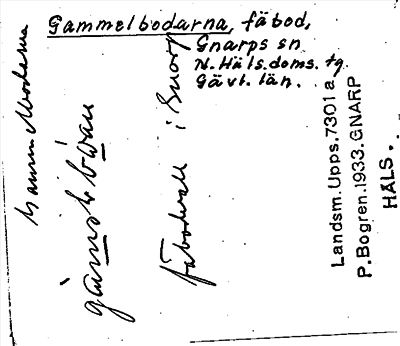 Gammelbodarna, fäbod,
Gnarps sn
N. Häls. doms. tg.
Gävl. län.
Gammelbodarna
fäbodvall i Gnarp
Landsm. Upps. 7301 a
P. Bogren. 1933. GNARP
HÄLS.